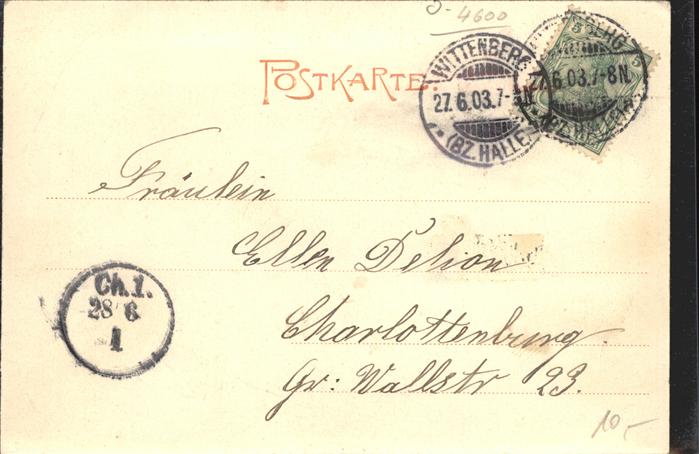 4600
POSTKARTE.
WITTENBERG
27.6.03.7-8N.
(BZ. HALLE)
27.6.03.7-8N.
(BZ. HALLE)
5 5
Fräulein
Ellen Delion
Charlottenburg.
Gr: Wallstr 23.
Ch.1.
28 6.
1
10,-